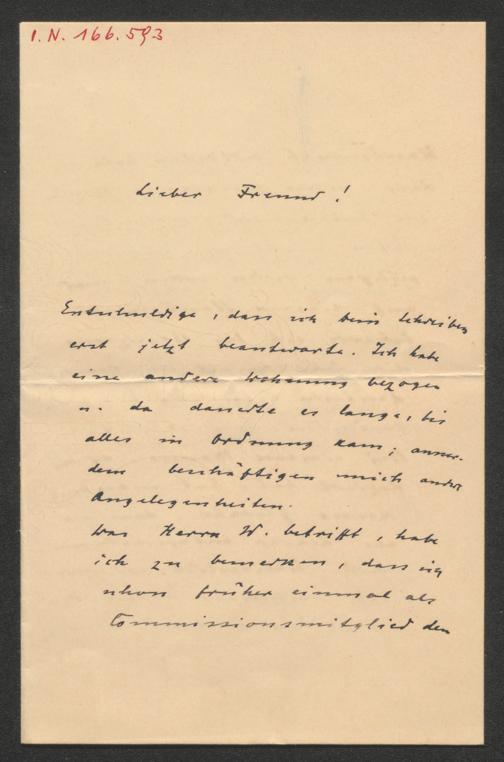 I.N. 166.593
Lieber Freund!
Entschuldige, dass ich Dein Schreiben
erst jetzt beantworte. Ich habe
eine andere Wohnung bezogen
u. da dauerte es lange, bis
alles in Ordnung kam; ausser-
dem beschäftigen mich andere
Angelegenheiten.
Was Herrn W. betrifft, habe
ich zu bemerken, dass ich
schon früher einmal als
Commissionsmitglied den